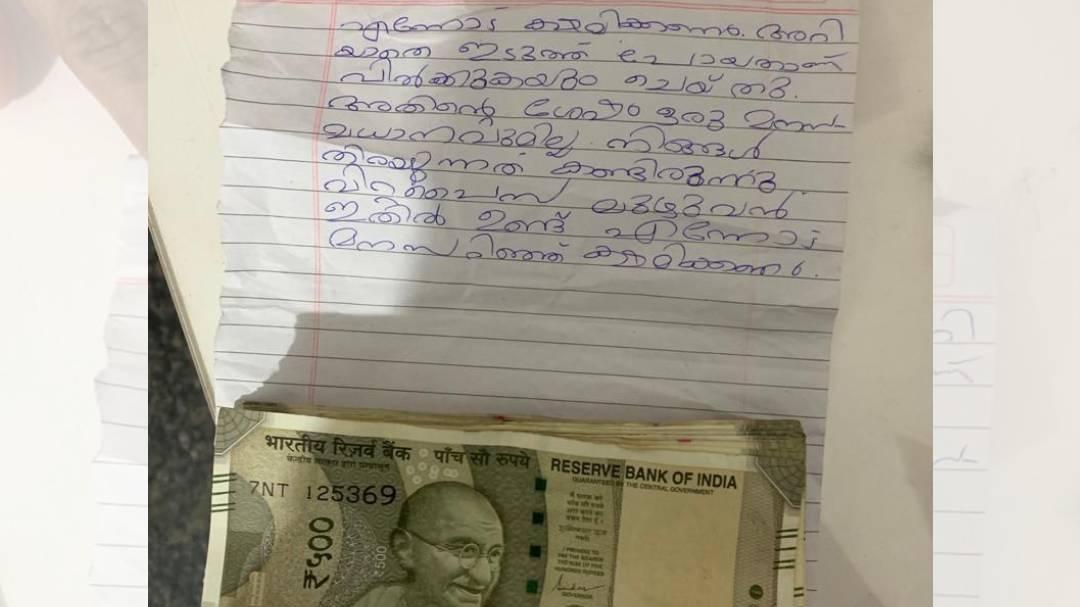 എന്നോട് ക്ഷമിക്കണം. അറി
യാതെ എടുത്ത് പോയതാണ്
വിൽക്കുകയും ചെയ്തു.
അതിന്റെ ശേഷം ഒരു മനസ-
മധാനവുമില്ല. നിങ്ങൾ
തിരയുന്നത് കണ്ടിരുന്നു.
വിറ്റപൈസ മുഴുവൻ
ഇതിൽ ഉണ്ട് എന്നോട്
മനസറിഞ്ഞ് ക്ഷമിക്കണം.
भारतीय रिज़र्व बैंक पाँच सौ रुपये
RESERVE BANK OF INDIA
केन्द्रीय सरकार द्वारा प्रत्याभूत
GUARANTEED BY THE CENTRAL GOVERNMENT
7NT 125369
₹५००
500
I PROMISE TO
PAY THE BEARER
THE SUM OF FIVE
HUNDRED RUPEES
GOVERNOR